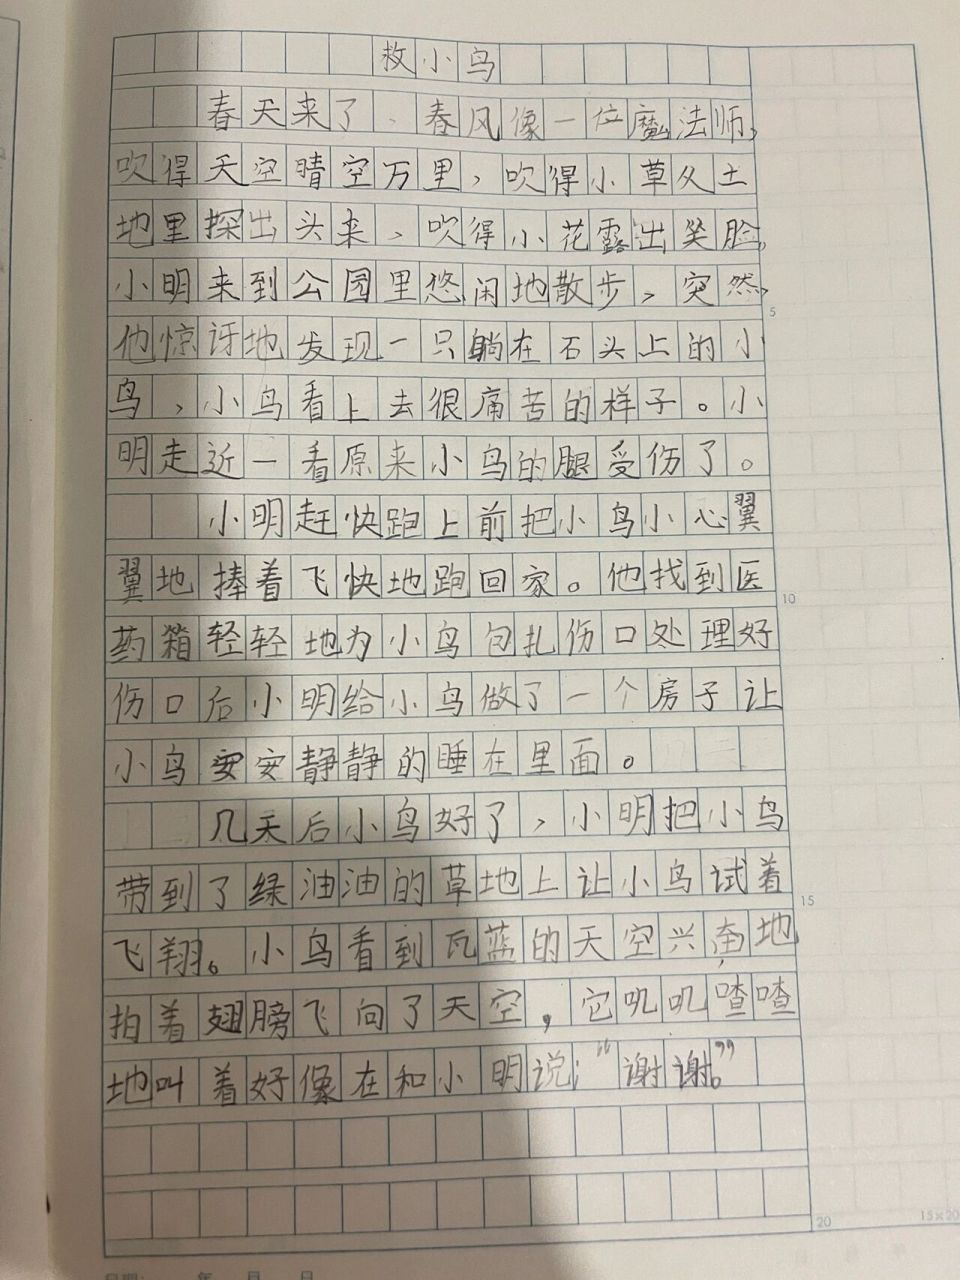 救小鸟
春天来了、春风像一位魔法师,
吹得天空晴空万里,吹得小草从土
地里探出头来、吹得小花露出笑脸,
小明来到公园里悠闲地散步,突然,
他惊讶地发现一只躺在石头上的小
鸟,小鸟看上去很痛苦的样子。小
明走近一看原来小鸟的腿受伤了。
小明赶快跑上前把小鸟小心翼
翼地捧着飞快地跑回家。他找到医
药箱轻轻地为小鸟包扎伤口处理好
伤口后小明给小鸟做了一个房子让
小鸟安安静静的睡在里面。
几天后小鸟好了,小明把小鸟
带到了绿油油的草地上让小鸟试着
飞翔。小鸟看到瓦蓝的天空兴奋地
拍着翅膀飞向了天空,它叽叽喳喳
地叫着好像在和小明说:“谢谢。”
5
10
15
20
15×20